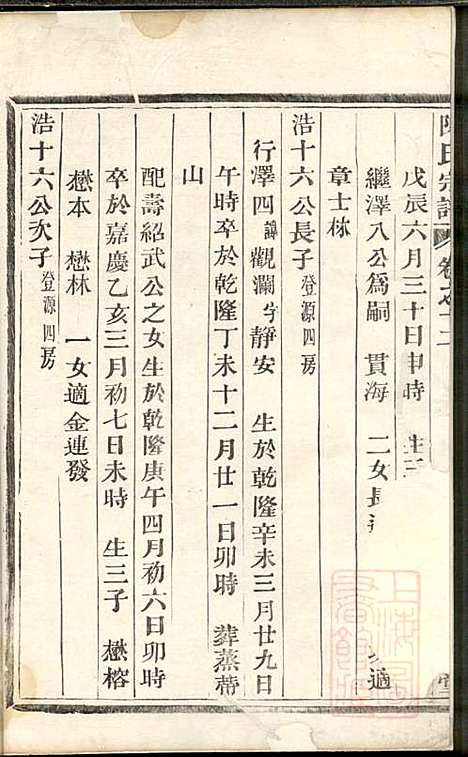 陳氏宗譜 卷之十二
戊辰六月三十日申時 生三
繼澤八公爲嗣 貫海 二女長適 適
章士栋
浩十六公長子登源四房
行澤四諱觀瀾字靜安 生於乾隆辛未三月廿九日
午時卒於乾隆丁未十二月廿一日卯時 葬蒸蒂
山
配壽紹武公之女生於乾隆庚午四月初六日卯時
卒於嘉慶乙亥三月初七日未時 生三子 懋榕
懋本 懋林 一女適金連發
浩十六公次子登源四房